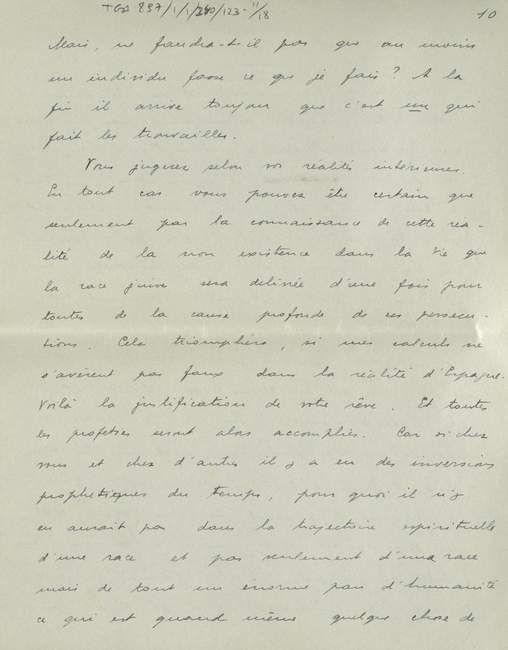 TGA 897/1/1/240/123-11/18
10
Mais, ne faudra-t-il pas que au moins
un individu fasse ce que je fais? A la
fin il arrive toujours que c'est un qui
fait les trouvailles.
Vous jugerez selon vos réalités intérieures.
En tout cas vous pouvez être certain que
seulement par la connaissance de cette réa-
lité de la non existence dans la vie que
la race juive sera délivrée d'une fois pour
toutes de la cause profonde de ses persecu-
tions. Cela triomphera, si mes calculs ne
s'avèrent pas faux dans la réalité d'Espagne.
Voilà la justification de votre rêve. Et toutes
les profeties seront alors accomplies. Car si chez
vous et chez d'autres il y a eu des inversions
prophetiques du temps, pourquoi il n'y
en aurait pas dans la trajectoire espirituelle
d'une race et pas seulement d'une race
mais de tout un énorme pan d'humanité
ce qui est quand même quelque chose de